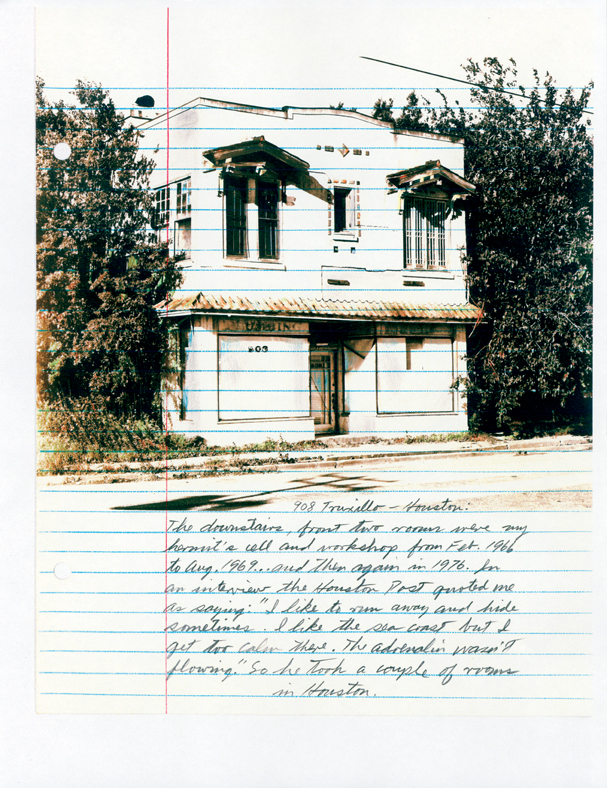 908
908 Truxillo - Houston.
The downstairs, front two rooms were my
hermit's cell and workshop from Feb. 1966
to Aug. 1969.. and then again in 1976. In
an interview the Houston Post quoted me
as saying: "I like to run away and hide
sometimes. I like the sea coast but I
get too calm there. The adrenalin wasn't
flowing." So he took a couple of rooms
in Houston.